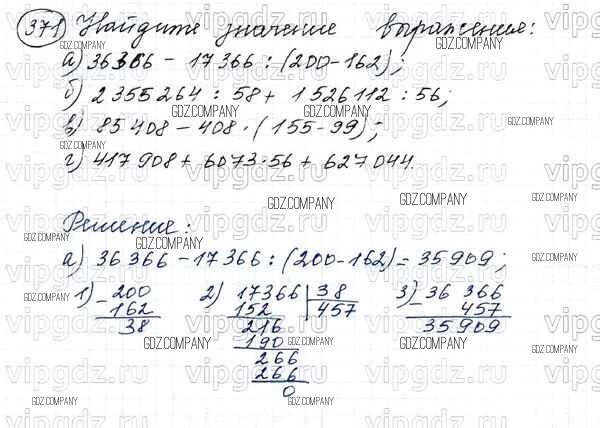 371 Найдите значение выражения:
а) 36366 - 17366 : (200-162);
б) 2355264 : 58 + 1526112 : 56;
в) 85408 - 408 · (155-99);
г) 417908 + 6073·56 + 627044.
Решение:
а) 36366 - 17366 : (200-162) = 35909;
1) - 200 2) 17366 | 38 3) - 36 366
162 152 457 457
38 216 35909
190
266
266
0
GDZ.COMPANY
vipgdz.ru